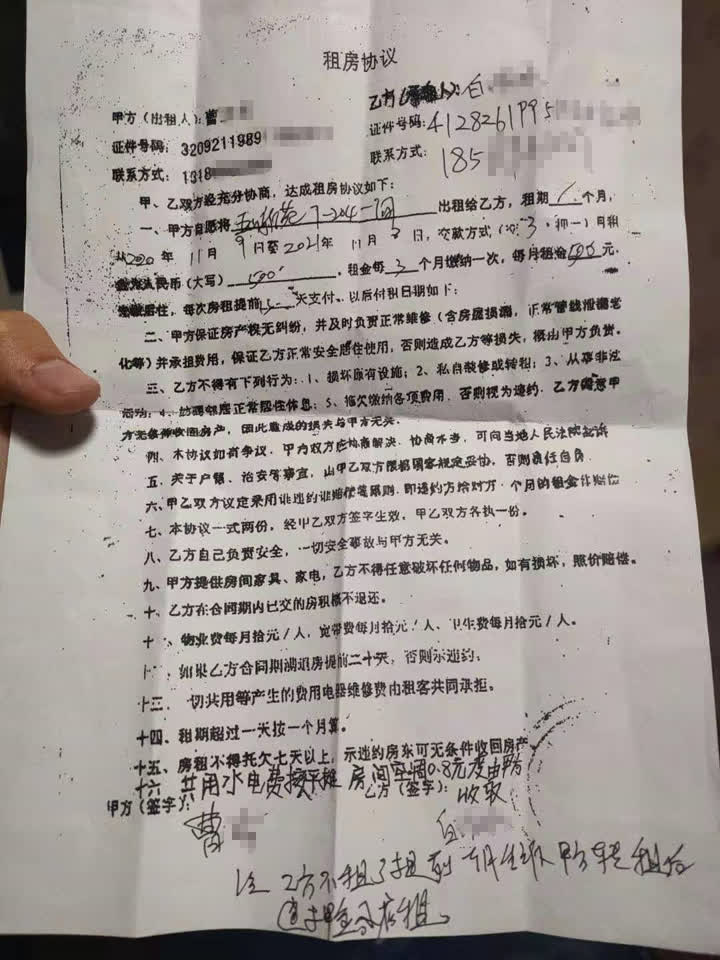 租房协议
甲方(出租人):曹
乙方(承租人):白
证件号码:3209211989
证件号码:4128261995
联系方式:18
联系方式:185
甲、乙双方经充分协商,达成租房协议如下:
一、甲方自愿将 7-204一间 出租给乙方,租期 个月,
从2020年 11月 9日至2021年 11月 日,交款方式(付3,押一)月租
金为人民币(大写) ,租金每3个月缴纳一次,每月租金 元,
每次房租提前 天支付。以后付租日期如下:
二、甲方保证房产权无纠纷,并及时负责正常维修(含房屋损漏,正常管线泄漏老
化等)并承担费用,保证乙方正常安全居住使用,否则造成乙方等损失,概由甲方负责。
三、乙方不得有下列行为:1、损坏原有设施;2、私自装修或转租;3、从事非法
活动;4、妨碍邻居正常居住休息;5、拖欠缴纳各项费用,否则视为违约,乙方同意甲
方无条件收回房产,因此造成的损失与甲方无关。
四、本协议如有争议,甲方双方应协商解决,协商不当,可向当地人民法院起诉
五、关于户籍、治安等事宜,由甲乙双方根据国家规定妥协,否则责任自负
六、甲乙双方议定采用谁违约谁赔偿等原则,即违约方给对方一个月的租金作赔偿
七、本协议一式两份,经甲乙双方签字生效,甲乙双方各执一份。
八、乙方自己负责安全,一切安全事故与甲方无关。
九、甲方提供房间家具、家电,乙方不得任意破坏任何物品,如有损坏,照价赔偿。
十、乙方在合同期内已交的房租概不退还。
十一、物业费每月拾元/人,宽带费每月拾元/人、卫生费每月拾元/人。
十二、如果乙方合同期满退房提前二十天,否则示违约;
十三、一切共用等产生的费用电器维修费由租客共同承担。
十四、租期超过一天按一个月算。
十五、房租不得托欠七天以上,示违约房东可无条件收回房产
十六 共用水电费按平摊 房间空调0.8元度由甲方
收取
甲方(签字):
乙方(签字):
曹
白
注 乙方不租了提前 甲方 租后
退押金及房租。